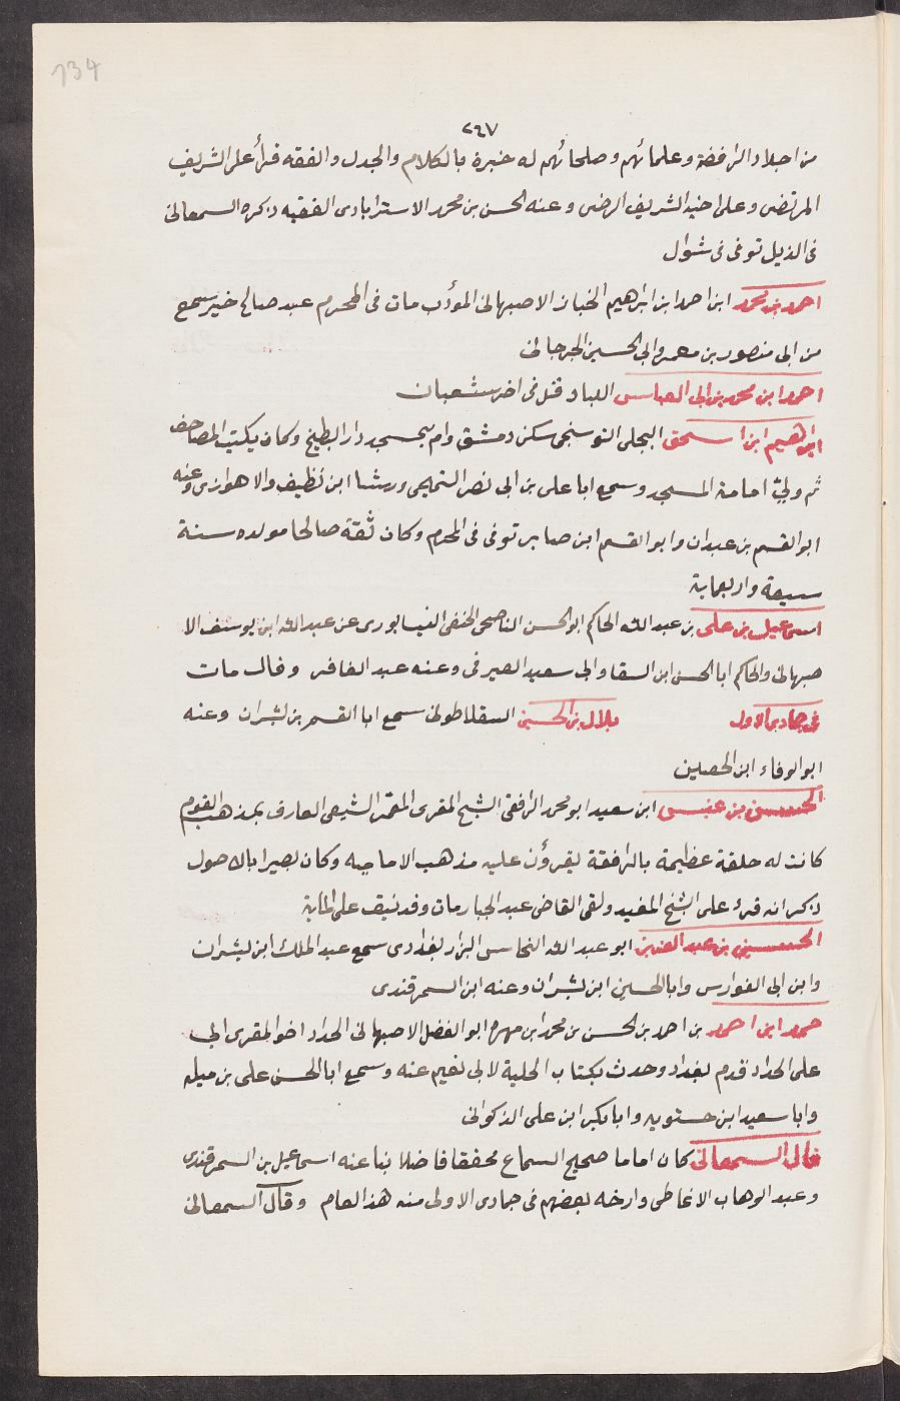 134
٢٤٧
من اجلاد الرافضة وعلمائهم وصلحائهم له خبرة بالكلام والجدل والفقه قرأ على الشريف
المرتضى وعلى اخيه الشريف الرضى وعنه الحسن بن محمد الاسترابادى الفقيه ذكره السمعانى
فى الذيل توفى فى شوال
احمد بن محمد ابن احمد ابن ابراهيم الخباز الاصبهانى المؤدب مات فى المحرم عبد صالح خير سمع
من ابى منصور بن معمر وابى الحسين الجرجانى
احمد ابن محمد بن ابى العباس اللباد قتل فى اخر شعبان
ابراهيم ابن اسحق البجلى البوسنجى سكن دمشق وام بمسجد دار البطيخ وكان يكتب المصاحف
ثم ولى امامة المسجد وسمع ابا على بن ابى نصر التميمى ورشا ابن نظيف والاهوازى وعنه
ابو القسم بن عبدان وابو القسم ابن صابر توفى فى المحرم وكان ثقة صالحا مولده سنة
سبعة واربعماية
اسماعيل بن على بن عبد الله الحاكم ابو الحسن الناصحى الحنفى النيسابورى عن عبد الله ابن يوسف الا
صبهانى والحاكم ابا الحسن ابن السقا وابى سعيد الصيرفى وعنه عبد الغافر وقال مات
فى جمادى الاول بلال بن الحسين السقلاطونى سمع ابا القسم بن بشران وعنه
ابو الوفاء ابن الحصين
الحسن بن عنبس ابن سعيد ابو محمد الرافقى الشيخ المقرى المعمر الشيعى العارف بمذهب القوم
كانت له حلقة عظيمة بالرافقة يقرؤن عليه مذهب الامامية وكان بصيرا بالاصول
ذكر انه قرء على الشيخ المفيد ولقى القاضى عبد الجبار مات وقد نيف على الماية
الحسين بن عبد العزيز ابو عبد الله النحاس البزار بغدادى سمع عبد الملك ابن بشران
وابن ابى الفوارس وابا الحسين ابن بشران وعنه ابن السمرقندى
حمد ابن احمد بن احمد بن الحسن بن محمد ابن مهره ابو الفضل الاصبهانى الحداد اخو المقرى ابى
على الحداد قدم بغداد وحدث بكتاب الحلية لابى نعيم عنه وسمع ابا الحسن على بن ميله
وابا سعيد ابن حسنويه وابا بكر ابن على الذكوانى
قال السمعانى كان اماما صحيح السماع محققا فاضلا نبا عنه اسماعيل بن السمرقندى
وعبد الوهاب الانماطى وارخه بعضهم فى جمادى الاولى منه هذا العام وقال السمعانى